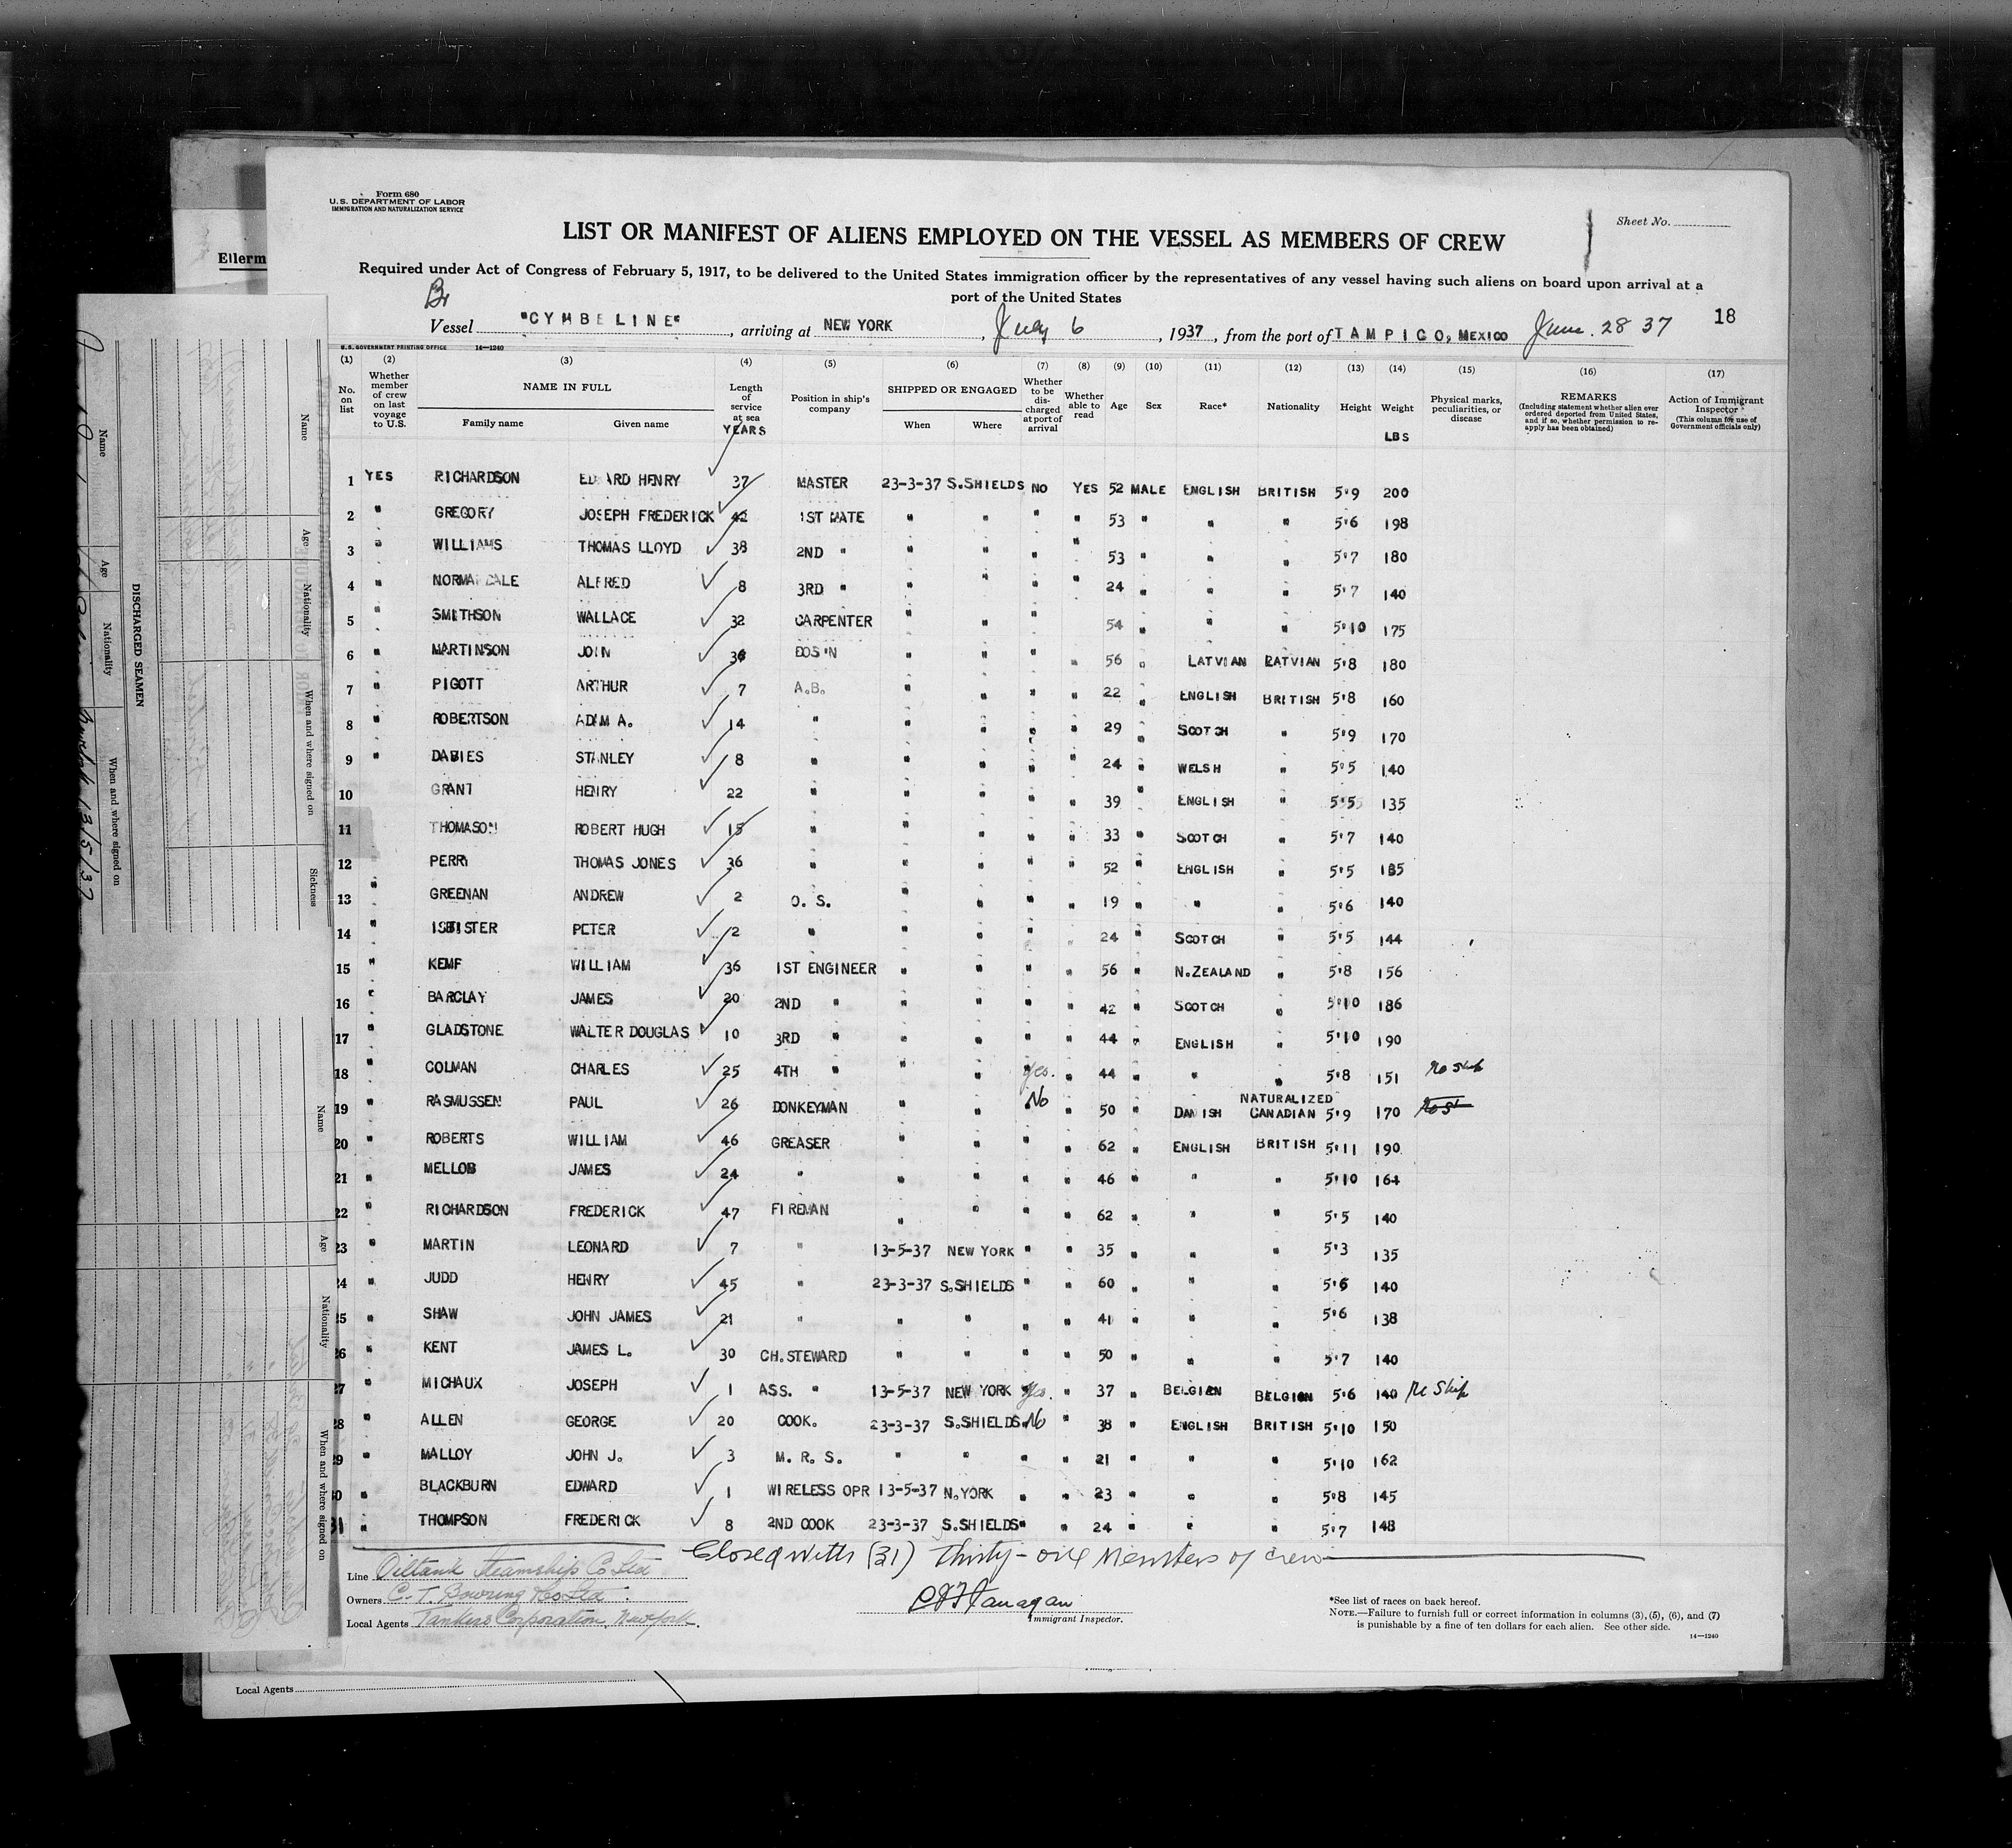 Form 680
U. S. DEPARTMENT OF LABOR
IMMIGRATION AND NATURALIZATION SERVICE
Sheet No.
LIST OR MANIFEST OF ALIENS EMPLOYED ON THE VESSEL AS MEMBERS OF CREW
Ellerm
Required under Act of Congress of February 5, 1917, to be delivered to the United States immigration officer by the representatives of any vessel having such aliens on board upon arrival at a
port of the United States
Br
Vessel "CYMBELINE", arriving at NEW YORK, July 6, 1937, from the port of TAMPICO, MEXICO June. 28 37
18
U. S. GOVERNMENT PRINTING OFFICE 14—1240
(1) (2) (3) (4) (5) (6) (7) (8) (9) (10) (11) (12) (13) (14) (15) (16) (17)
No. on list
Whether member of crew on last voyage to U.S.
NAME IN FULL
Family name Given name
Length of service at sea
YEARS
Position in ship's company
SHIPPED OR ENGAGED
When Where
Whether to be discharged at port of arrival
Whether able to read
Age Sex Race* Nationality Height Weight
LBS
Physical marks, peculiarities, or disease
REMARKS
(Including statement whether alien ever ordered deported from United States, and if so, whether permission to reapply has been obtained)
Action of Immigrant Inspector
(This column for use of Government officials only)
1 YES RICHARDSON ED ARD HENRY 37 MASTER 23-3-37 S.SHIELDS NO YES 52 MALE ENGLISH BRITISH 5'9 200
2 " GREGORY JOSEPH FREDERICK 42 1ST MATE " " " " 53 " " " 5'6 198
3 " WILLIAMS THOMAS LLOYD 38 2ND " " " " " 53 " " " 5'7 180
4 " NORMANDALE ALFRED 8 3RD " " " " " 24 " " " 5'7 140
5 " SMITHSON WALLACE 32 CARPENTER " " " 54 " " " 5'10 175
6 " MARTINSON JOHN 36 BOS'N " " " " 56 " LATVIAN LATVIAN 5'8 180
7 " PIGOTT ARTHUR 7 A.B. " " " " 22 " ENGLISH BRITISH 5'8 160
8 " ROBERTSON ADAM A. 14 " " " " " 29 " SCOTCH " 5'9 170
9 " DAVIES STANLEY 8 " " " " " 24 " WELSH " 5'5 140
10 GRANT HENRY 22 " " " " " 39 " ENGLISH " 5'5 135
11 THOMASON ROBERT HUGH 15 " " " " " 33 " SCOTCH " 5'7 140
12 PERRY THOMAS JONES 36 " " " " " 52 " ENGLISH " 5'5 185
13 " GREENAN ANDREW 2 O. S. " " " " 19 " " " 5'6 140
14 " ISBISTER PETER 2 " " " " " 24 " SCOTCH " 5'5 144
15 " KEMP WILLIAM 36 1ST ENGINEER " " " " 56 " N.ZEALAND " 5'8 156
16 " BARCLAY JAMES 20 2ND " " " " " 42 " SCOTCH " 5'10 186
17 " GLADSTONE WALTER DOUGLAS 10 3RD " " " " " 44 " ENGLISH " 5'10 190
18 " COLMAN CHARLES 25 4TH " " " Yes. " 44 " " " 5'8 151 Re Ship
19 " RASMUSSEN PAUL 26 DONKEYMAN " " No " 50 " DANISH NATURALIZED CANADIAN 5'9 170
20 " ROBERTS WILLIAM 46 GREASER " " " " 62 " ENGLISH BRITISH 5'11 190
21 " MELLOR JAMES 24 " " " " " 46 " " " 5'10 164
22 " RICHARDSON FREDERICK 47 FIREMAN " " " " 62 " " " 5'5 140
23 " MARTIN LEONARD 7 " 13-5-37 NEW YORK " " 35 " " " 5'3 135
24 " JUDD HENRY 45 " 23-3-37 S.SHIELDS " " 60 " " " 5'6 140
25 " SHAW JOHN JAMES 21 " " " " " 41 " " " 5'6 138
26 " KENT JAMES L. 30 CH.STEWARD " " " " 50 " " " 5'7 140
27 " MICHAUX JOSEPH 1 ASS. " 13-5-37 NEW YORK Yes. " 37 " BELGIAN BELGIAN 5'6 140 Re Ship
28 " ALLEN GEORGE 20 COOK. 23-3-37 S.SHIELDS No " 38 " ENGLISH BRITISH 5'10 150
29 " MALLOY JOHN J. 3 M. R. S. " " " " 21 " " " 5'10 162
30 " BLACKBURN EDWARD 1 WIRELESS OPR 13-5-37 N.YORK " " 23 " " " 5'8 145
31 " THOMPSON FREDERICK 8 2ND COOK 23-3-37 S.SHIELDS " " 24 " " " 5'7 148
Closed with (31) Thirty-one Members of crew
Line Oiltank Steamship Co Ltd
Owners C. T. Bowring & Co Ltd.
Local Agents Tankers Corporation, New York.
Immigrant Inspector.
*See list of races on back hereof.
NOTE.—Failure to furnish full or correct information in columns (3), (5), (6), and (7)
is punishable by a fine of ten dollars for each alien. See other side.
14—1240
Local Agents
DISCHARGED SEAMEN
Name Age Nationality When and where signed on Sickness
Name Age Nationality When and where signed on
13/5/37
Name Age Nationality When and where signed on